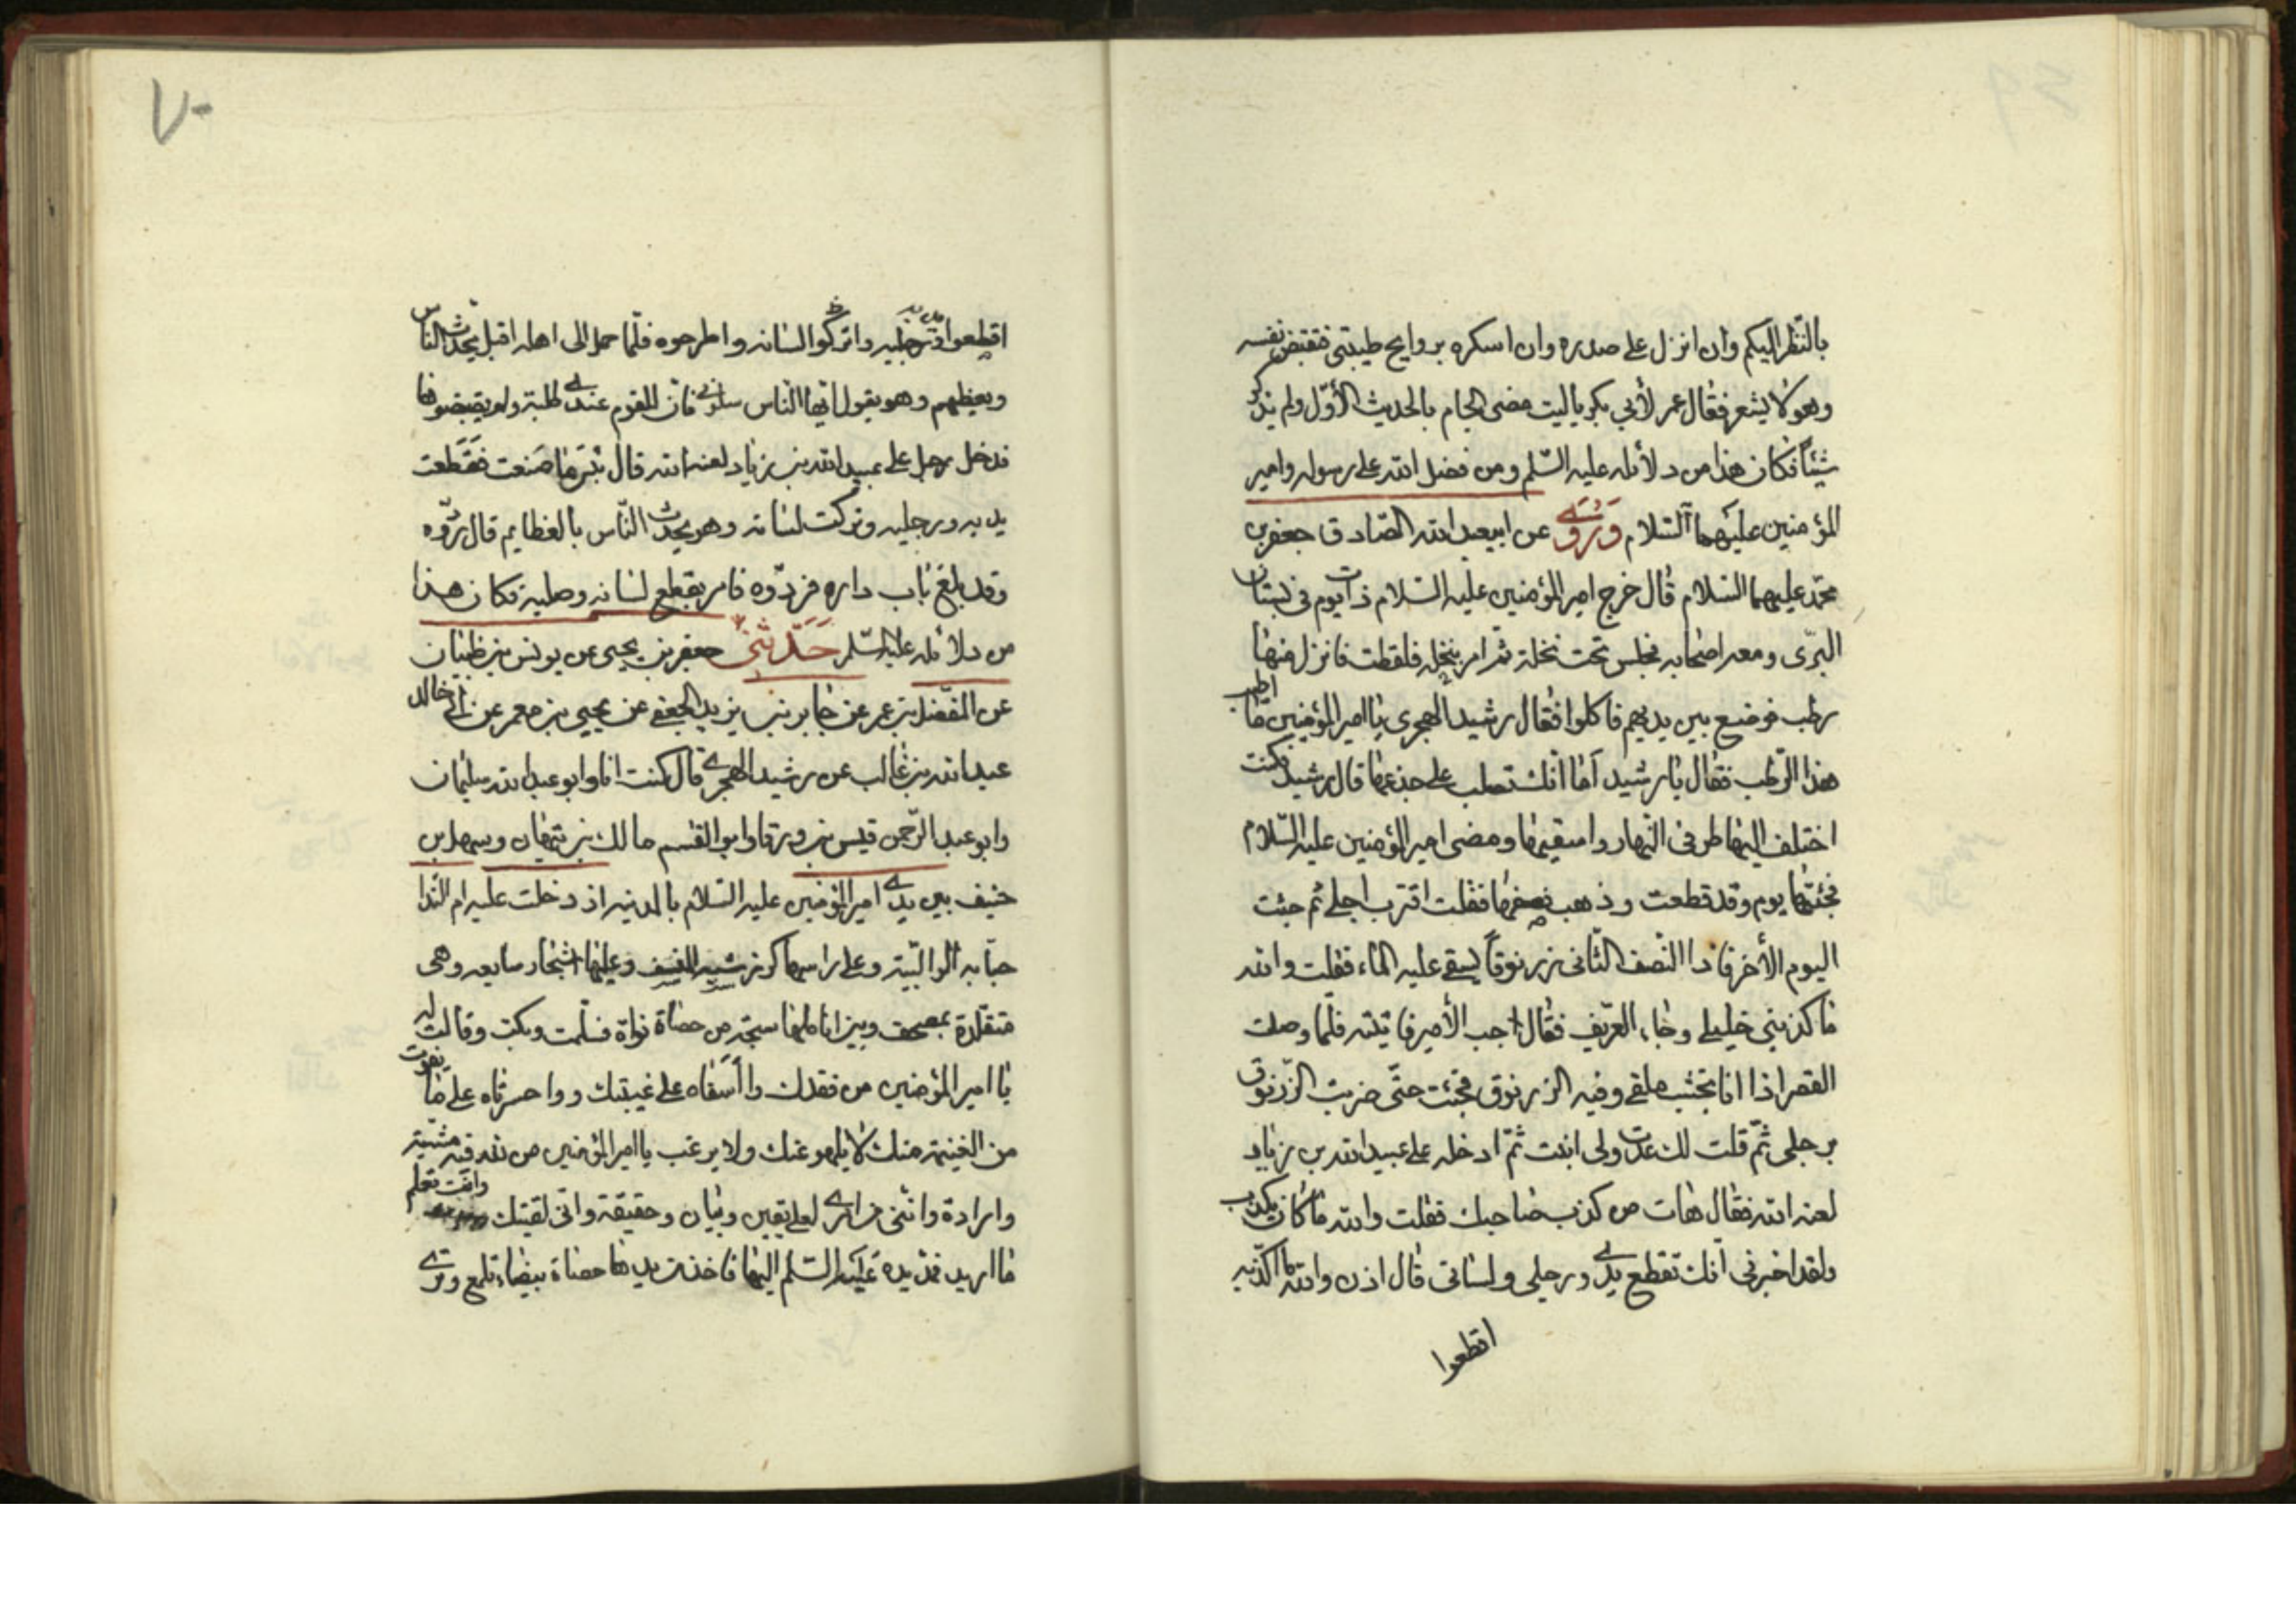 بالنّظر اليكم وان انزل على صدره وان اسكره بروايح طيبتى فقبض نفسه
وهو لا يشعر فقال عمر لأبي بكر ياليت مضى الجام بالحديث الأوّل ولم نذكر
شيئاً فكان هذا من دلائله عليه السّلم ومن فضل الله على رسوله وامير
المؤمنين عليهما السّلام وَرُوىَ عن ابيعبد الله الصّادق جعفر بن
محمّد عليهما السّلام قال خرج امير المؤمنين عليه السّلام ذات يوم فى بستان
البرّى ومعه اصحابه فجلس تحت نخلة ثمّ امر بنخله فلقطت فانزل منها
رطب فوضع بين يديهم فاكلوا فقال رشيد الهجرى يا امير المؤمنين ما اطيب
هذا الرّطب فقال يا رشيد أما انّك تصلب على جذعها قال رشيد فكنت
اختلف اليها طرفى النّهار واسقيها ومضى امير المؤمنين عليه السّلام
فجئتها يوم وقد قطعت وذهب نصفها فقلت اقترب اجلى ثم جئت
اليوم الأخر فاذا النّصف الثّانى زرنوقاً ليسقى عليه الماء فقلت والله
ما كذبنى خليلى وجاء العرّيف فقال اجب الأمير فاتيته فلمّا وصلت
القصر اذا انا بخشب ملقى وفيه الزرنوق فجئت حتّى ضربت الزّرنوق
برجلى ثمّ قلت لك عدت ولى انبت ثمّ ادخله على عبيد الله بن زياد
لعنه الله فقال هات من كذب صاحبك فقلت والله ما كان يكذب
ولقد اخبرنى انّك تقطع يدى ورجلى ولسانى قال اذن والله نا اكذّبه
اقطعوا
٧٠
اقطعوا يديه ورجليه واتركوا لسانه واطرحوه فلمّا حمل الى اهله اقبل يحدّث النّاس
ويعظهم وهو يقول ايّها النّاس سلونى فانّ للقوم عندى طلبة ولم يقبضوها
فدخل رجل على عبيد الله بن زياد لعنه الله قال بئس ما صنعت فقطعت
يديه ورجليه وتركت لسانه وهو يحدّث النّاس بالعظايم قال ردّوه
وقد بلغ باب داره فردّوه فامر بقطع لسانه وصلبه فكان هذا
من دلائله عليه السّلم حَدَّثَنى جعفر بن يحيى عن يونس بن ظبيان
عن المفضل بن عمر عن جابر بن يزيد الجعفى عن يحيى بن معمر عن ابى خالد
عبد الله بن غالب عن رشيد الهجرى قال كنت انا وابو عبد الله سليمان
وابو عبد الرّحمن قيس بن ورقا وابو القسم مالك بن تيهان وسهل بن
حنيف بين يدى امير المؤمنين عليه السّلام بالمدينه اذ دخلت عليه ام النّدا
حبّابه الوالبيّة وعلى راسها كور شبه المنسف وعليها اثجار سابعه وهى
متقلدة بمصحف وبين اناملها سبحة من حصاة نواة فسلّمت وبكت وقالت له
يا امير المؤمنين من فقدك واأسفاه على غيبتك وواحسرتاه على ما يفوت
من الغنيمة منك لا يلهو عنك ولا يرغب يا امير المؤمنين من لله فيه مشيّة
وارادة وانّنى من امرى لعلى يقين وبيان وحقيقة وانّى لقيتك وانت تعلم
ما اريد فمدّ يده عليه السّلم اليها فاخذ من يدها حصاة بيضاء تلمع وترى